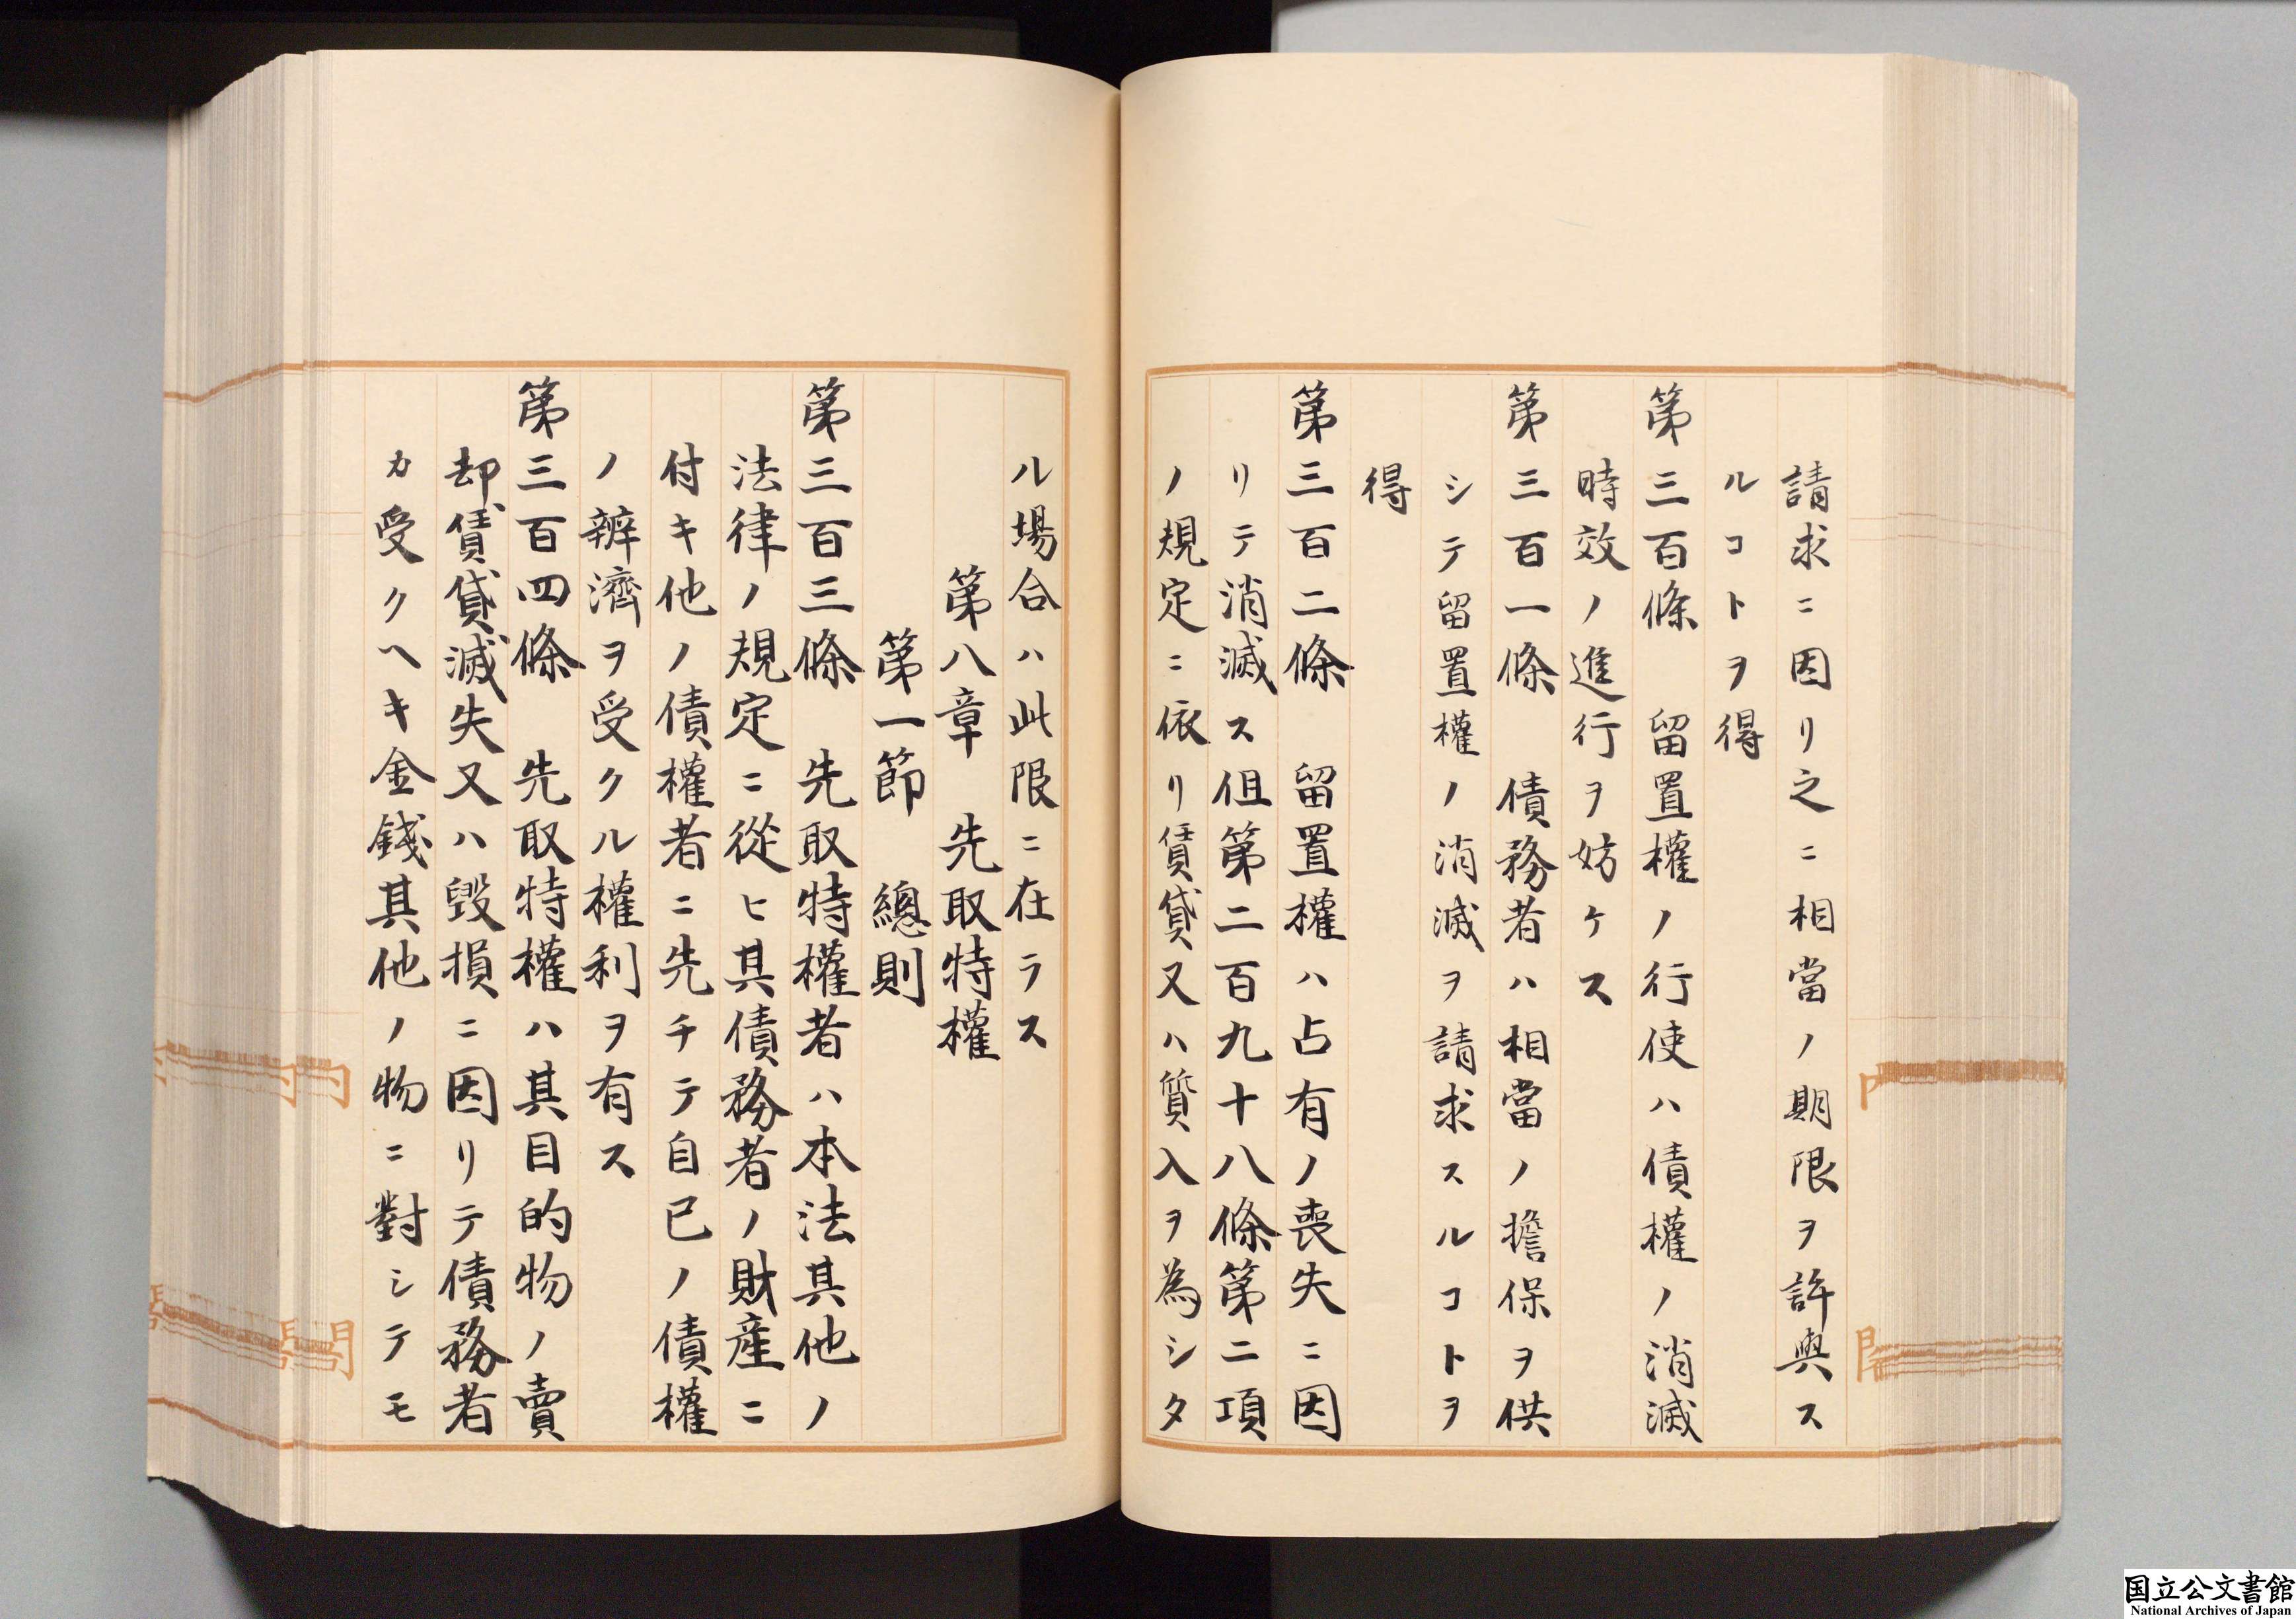 請求ニ因リ之ニ相當ノ期限ヲ許與ス
ルコトヲ得
第三百條　留置權ノ行使ハ債權ノ消滅
時效ノ進行ヲ妨ケス
第三百一條　債務者ハ相當ノ擔保ヲ供
シテ留置權ノ消滅ヲ請求スルコトヲ
得
第三百二條　留置權ハ占有ノ喪失ニ因
リテ消滅ス伹第二百九十八條第二項
ノ規定ニ依リ賃貸又ハ質入ヲ為シタ
ル場合ハ此限ニ在ラス
第八章　先取特權
第一節　總則
第三百三條　先取特權者ハ本法其他ノ
法律ノ規定ニ從ヒ其債務者ノ財産ニ
付キ他ノ債權者ニ先チテ自己ノ債權
ノ辨濟ヲ受クル權利ヲ有ス
第三百四條　先取特權ハ其目的物ノ賣
却、賃貸、滅失又ハ毀損ニ因リテ債務者
カ受クヘキ金錢其他ノ物ニ對シテモ
国立公文書館
National Archives of Japan